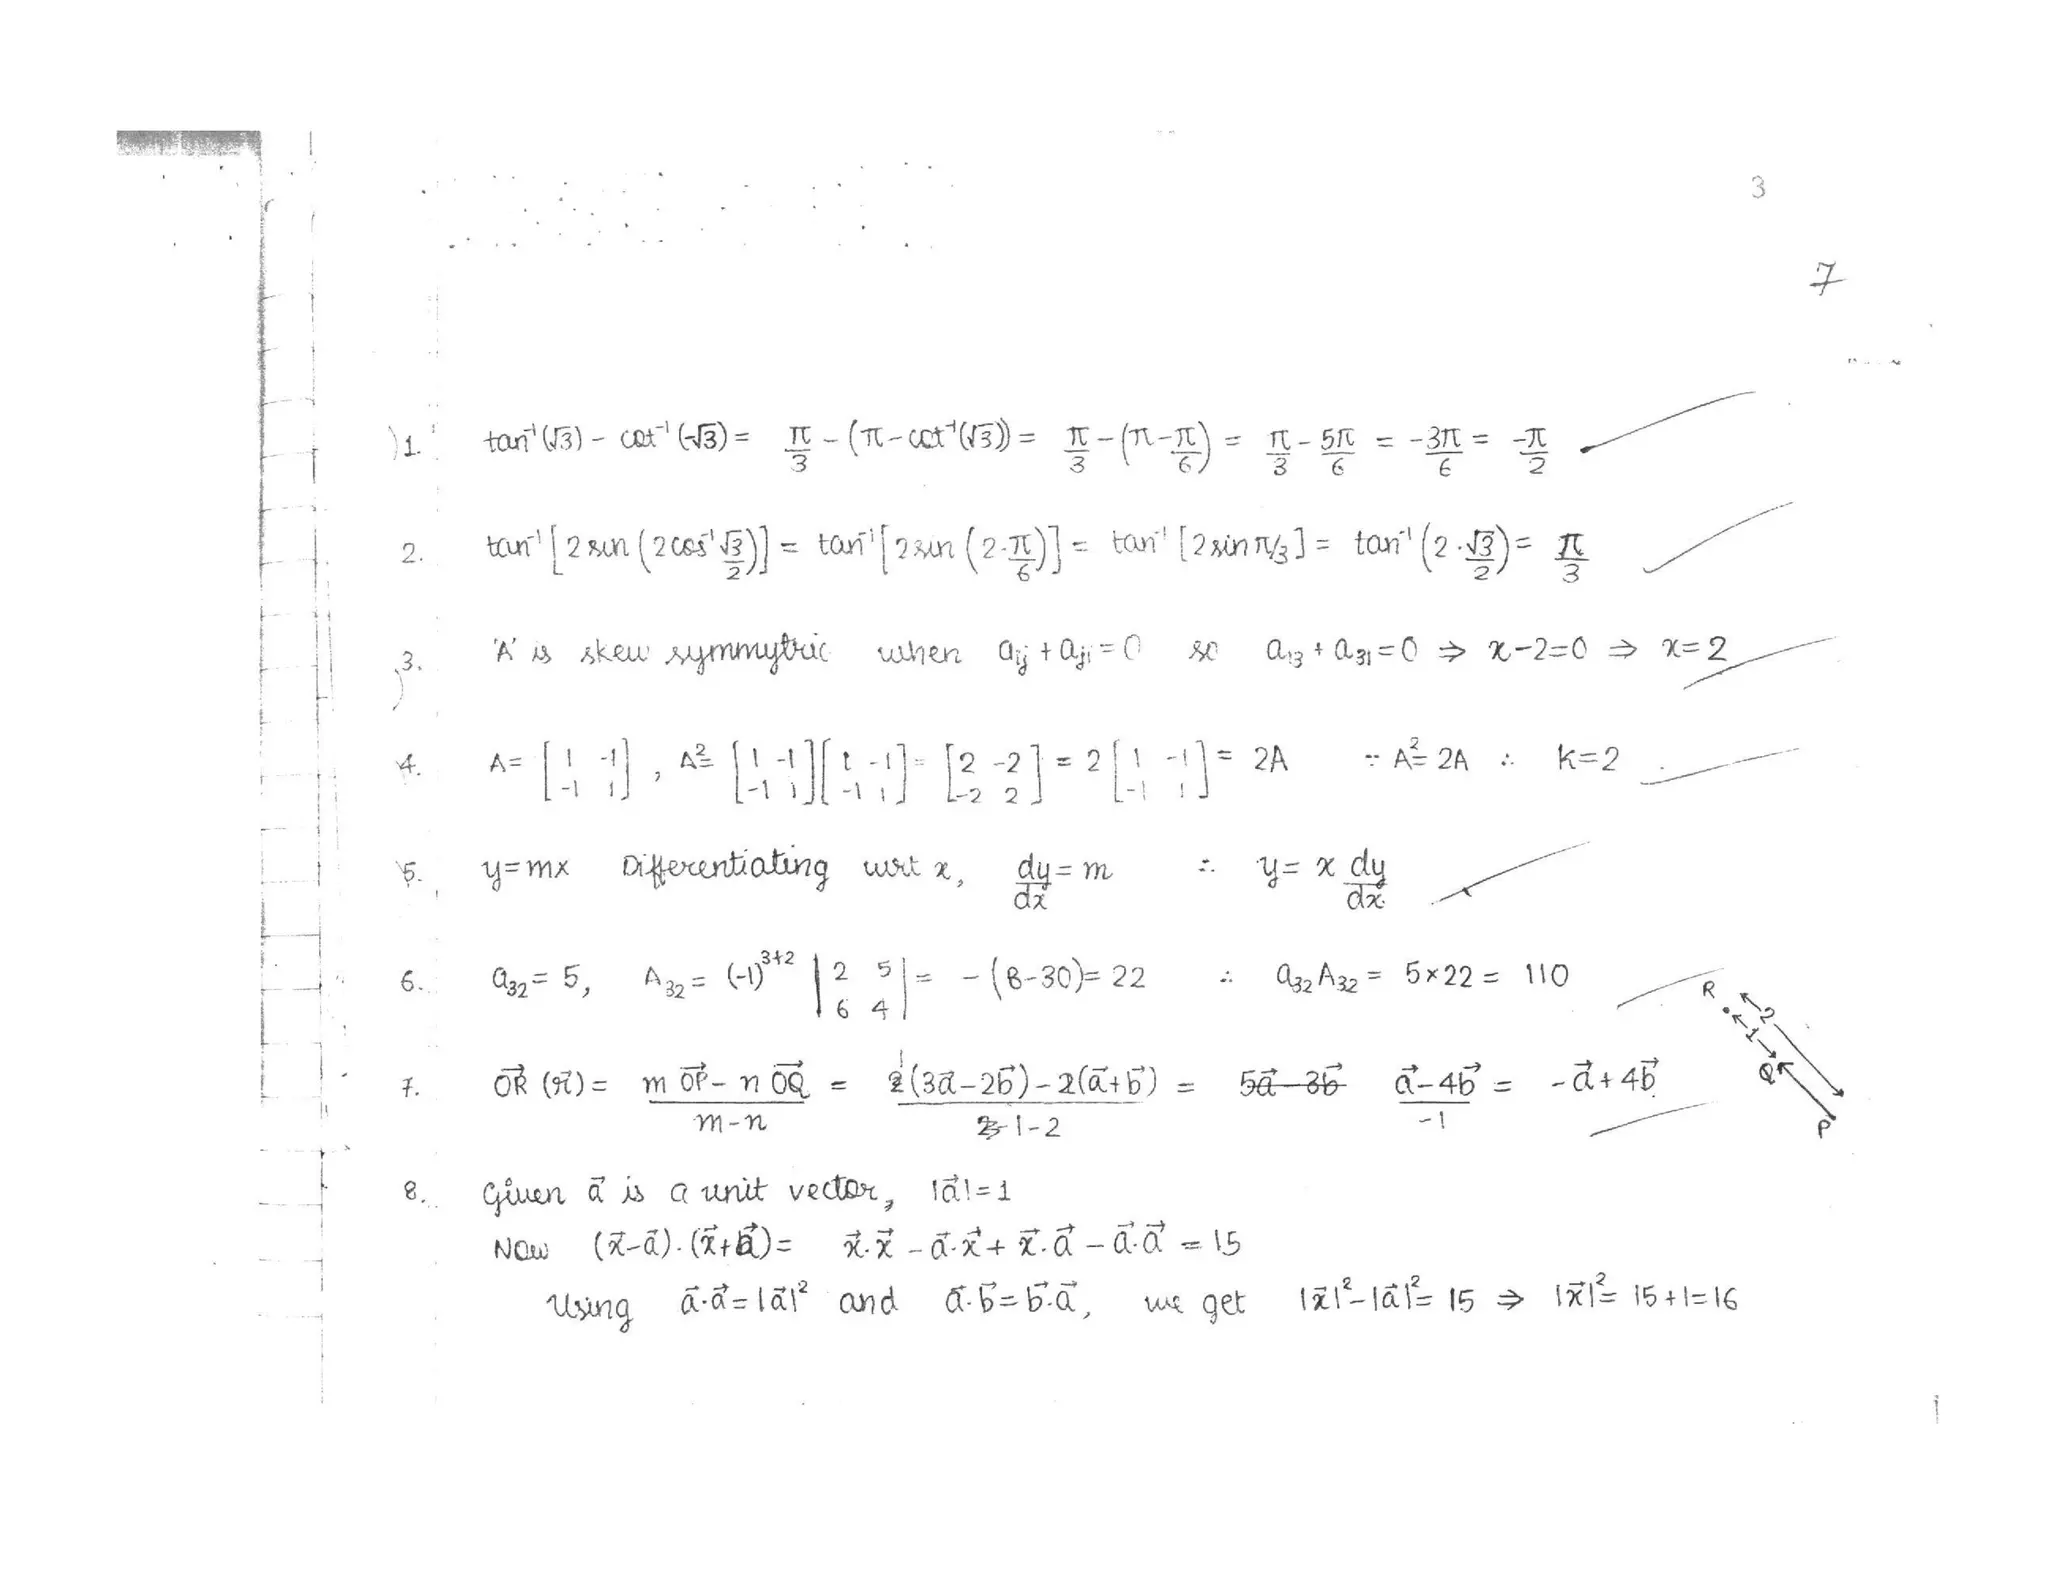 3
7
1. tan⁻¹(√3) - cot⁻¹(-√3) = π/3 - (π - cot⁻¹(√3)) = π/3 - (π - π/6) = π/3 - 5π/6 = -3π/6 = -π/2
2. tan⁻¹[2 sin(2 cos⁻¹ √3/2)] = tan⁻¹[2 sin(2·π/6)] = tan⁻¹[2 sin π/3] = tan⁻¹(2·√3/2) = π/3
3. 'A' is skew symmytric when aᵢⱼ + aⱼᵢ = 0 so a₁₃ + a₃₁ = 0 ⇒ x-2=0 ⇒ x=2
4. A = [1 -1; -1 1], A² = [1 -1; -1 1][1 -1; -1 1] = [2 -2; -2 2] = 2[1 -1; -1 1] = 2A ∵ A² = 2A ∴ k=2
5. y=mx Differentiating wrt x, dy/dx = m ∴ y = x dy/dx
6. a₃₂ = 5, A₃₂ = (-1)³⁺² |2 5; 6 4| = -(8-30) = 22 ∴ a₃₂A₃₂ = 5×22 = 110
R 2 1 Q P
7. OR⃗ (r⃗) = (m OP⃗ - n OQ⃗)/(m-n) = (1(3a⃗-2b⃗) - 2(a⃗+b⃗))/(1-2) = 5a⃗-3b⃗ (a⃗-4b⃗)/-1 = -a⃗+4b⃗
8. Given a⃗ is a unit vector, |a⃗|=1
Now (x⃗-a⃗).(x⃗+a⃗) = x⃗.x⃗ - a⃗.x⃗ + x⃗.a⃗ - a⃗.a⃗ = 15
Using a⃗.a⃗ = |a⃗|² and a⃗.b⃗ = b⃗.a⃗, we get |x⃗|²-|a⃗|² = 15 ⇒ |x⃗|² = 15+1=16